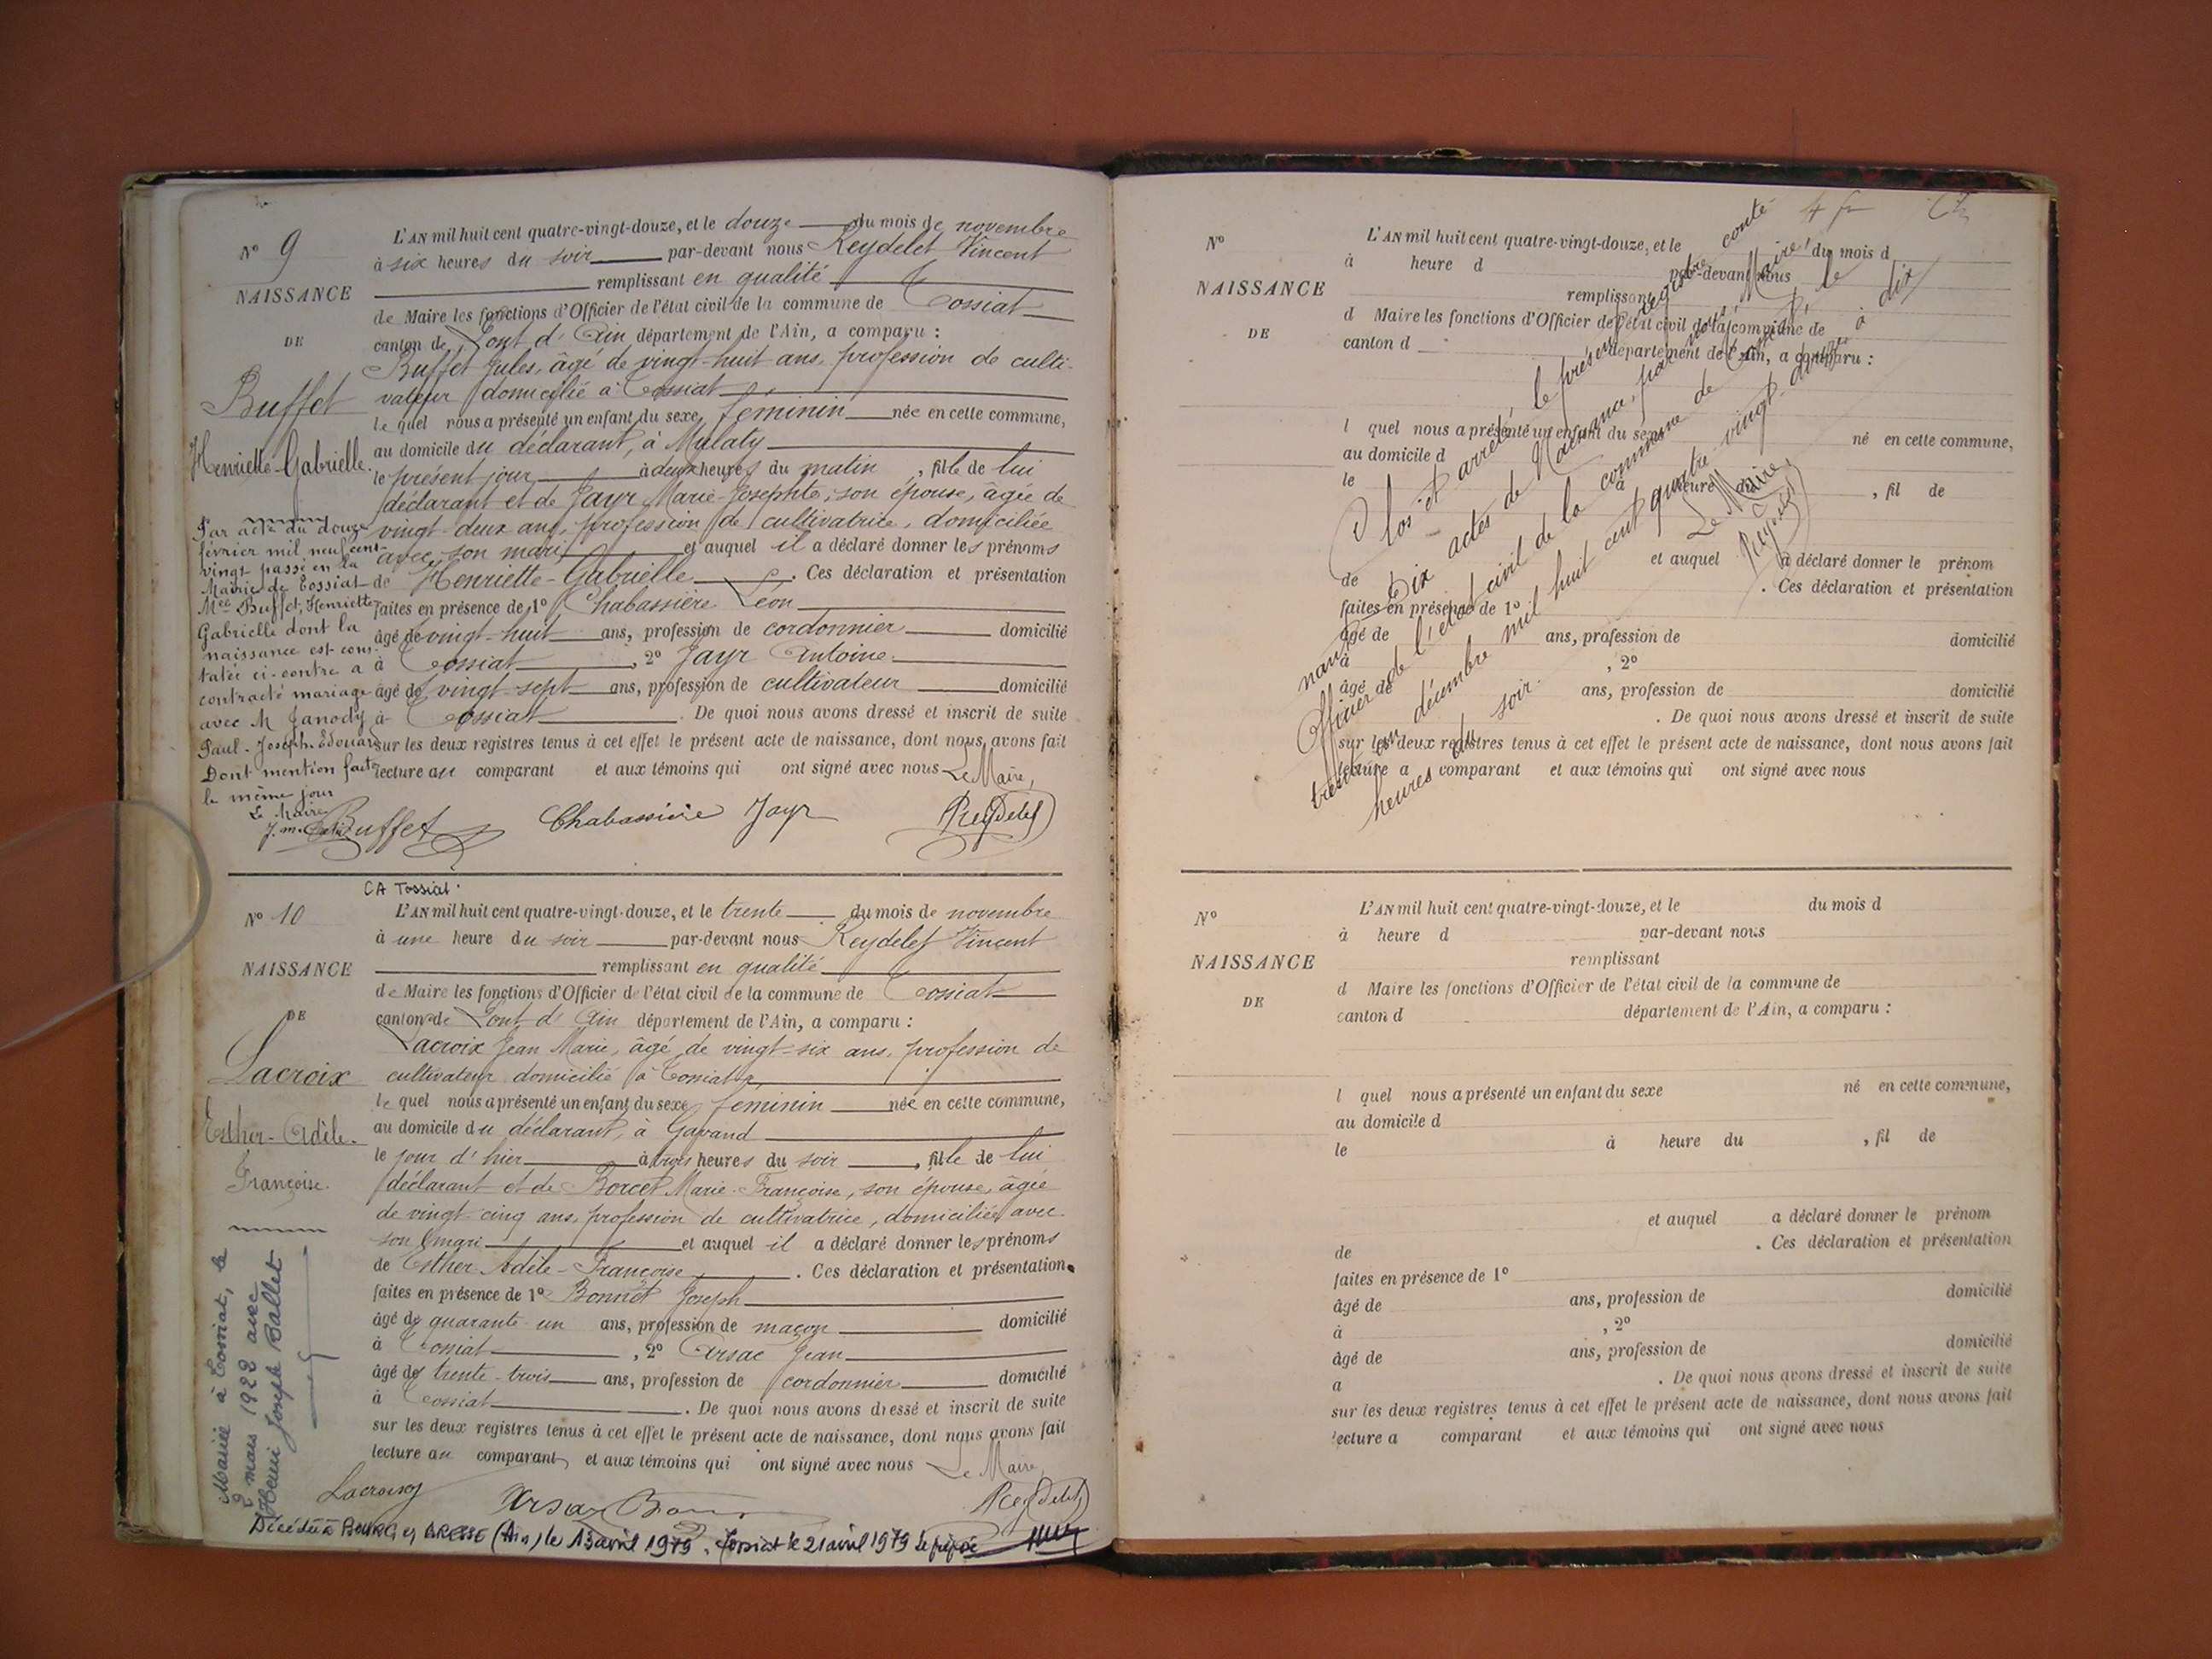 N° 9
NAISSANCE
DE
Buffet
Henriette-Gabrielle.
Par acte du douze
février mil neuf cent
vingt passé en la
Mairie de Tossiat
Mlle Buffet, Henriette
Gabrielle dont la
naissance est cons-
tatée ci-contre a
contracté mariage
avec M Janody
Paul-Joseph-Edouard
Dont mention faite
le même jour
Le Maire
L'AN mil huit cent quatre-vingt-douze, et le douze du mois de novembre
à six heures du soir par-devant nous Reydelet Vincent
remplissant en qualité
de Maire les fonctions d'Officier de l'état civil de la commune de Tossiat
canton de Pont d'Ain département de l'Ain, a comparu :
Buffet Jules, âgé de vingt-huit ans, profession de culti-
vateur domicilié à Tossiat
le quel nous a présenté un enfant du sexe féminin née en cette commune,
au domicile du déclarant, à Mulaty
le présent jour à deux heures du matin, fille de lui
déclarant et de Jayr Marie-Josephte, son épouse, âgée de
vingt-deux ans, profession de cultivatrice, domiciliée
avec son mari et auquel il a déclaré donner les prénoms
de Henriette-Gabrielle. Ces déclaration et présentation
faites en présence de 1° Chabassière Léon
âgé de vingt-huit ans, profession de cordonnier domicilié
à Tossiat, 2° Jayr Antoine
âgé de vingt-sept ans, profession de cultivateur domicilié
à Tossiat. De quoi nous avons dressé et inscrit de suite
sur les deux registres tenus à cet effet le présent acte de naissance, dont nous avons fait
lecture au comparant et aux témoins qui ont signé avec nous Le Maire,
Buffet Chabassière Jayr Reydelet
CA Tossiat.
N° 10
NAISSANCE
DE
Lacroix
Esther-Adèle-
Françoise.
Mariée à Tossiat, le
2 mars 1922 avec
Henri Joseph Ballet
L'AN mil huit cent quatre-vingt-douze, et le trente du mois de novembre
à une heure du soir par-devant nous Reydelet Vincent
remplissant en qualité
de Maire les fonctions d'Officier de l'état civil de la commune de Tossiat
canton de Pont d'Ain département de l'Ain, a comparu :
Lacroix Jean Marie, âgé de vingt-six ans, profession de
cultivateur domicilié à Tossiat
le quel nous a présenté un enfant du sexe féminin née en cette commune,
au domicile du déclarant, à Gavand
le jour d'hier à trois heures du soir, fille de lui
déclarant et de Borcet Marie-Françoise, son épouse, âgée
de vingt-cinq ans, profession de cultivatrice, domiciliée avec
son mari et auquel il a déclaré donner les prénoms
de Esther Adèle-Françoise. Ces déclaration et présentation
faites en présence de 1° Bonnet Joseph
âgé de quarante un ans, profession de maçon domicilié
à Tossiat, 2° Arsac Jean
âgé de trente-trois ans, profession de cordonnier domicilié
à Tossiat. De quoi nous avons dressé et inscrit de suite
sur les deux registres tenus à cet effet le présent acte de naissance, dont nous avons fait
lecture au comparant, et aux témoins qui ont signé avec nous Le Maire,
Lacroix Arsac Reydelet
Décédée à BOURG en BRESSE (Ain) le 13 avril 1979. Tossiat le 21 avril 1979
4 f
N°
NAISSANCE
DE
L'AN mil huit cent quatre-vingt-douze, et le du mois d
à heure d par-devant nous
remplissant
d Maire les fonctions d'Officier de l'état civil de la commune de
canton d département de l'Ain, a comparu :
l quel nous a présenté un enfant du sexe né en cette commune,
au domicile d
le à heure du , fil de
et auquel a déclaré donner le prénom
de . Ces déclaration et présentation
faites en présence de 1°
âgé de ans, profession de domicilié
à , 2°
âgé de ans, profession de domicilié
. De quoi nous avons dressé et inscrit de suite
sur les deux registres tenus à cet effet le présent acte de naissance, dont nous avons fait
lecture a comparant et aux témoins qui ont signé avec nous
Clos et arrêté le présent registre conte-
nant Dix actes de Naissance, par nous, Maire,
Officier de l'état civil de la commune de Tossiat, le
trente un décembre mil huit cent quatre vingt-douze à dix
heures du soir.
Le Maire,
Reydelet
N°
NAISSANCE
DE
L'AN mil huit cent quatre-vingt-douze, et le du mois d
à heure d par-devant nous
remplissant
d Maire les fonctions d'Officier de l'état civil de la commune de
canton d département de l'Ain, a comparu :
l quel nous a présenté un enfant du sexe né en cette commune,
au domicile d
le à heure du , fil de
et auquel a déclaré donner le prénom
de . Ces déclaration et présentation
faites en présence de 1°
âgé de ans, profession de domicilié
à , 2°
âgé de ans, profession de domicilié
a . De quoi nous avons dressé et inscrit de suite
sur les deux registres tenus à cet effet le présent acte de naissance, dont nous avons fait
lecture a comparant et aux témoins qui ont signé avec nous